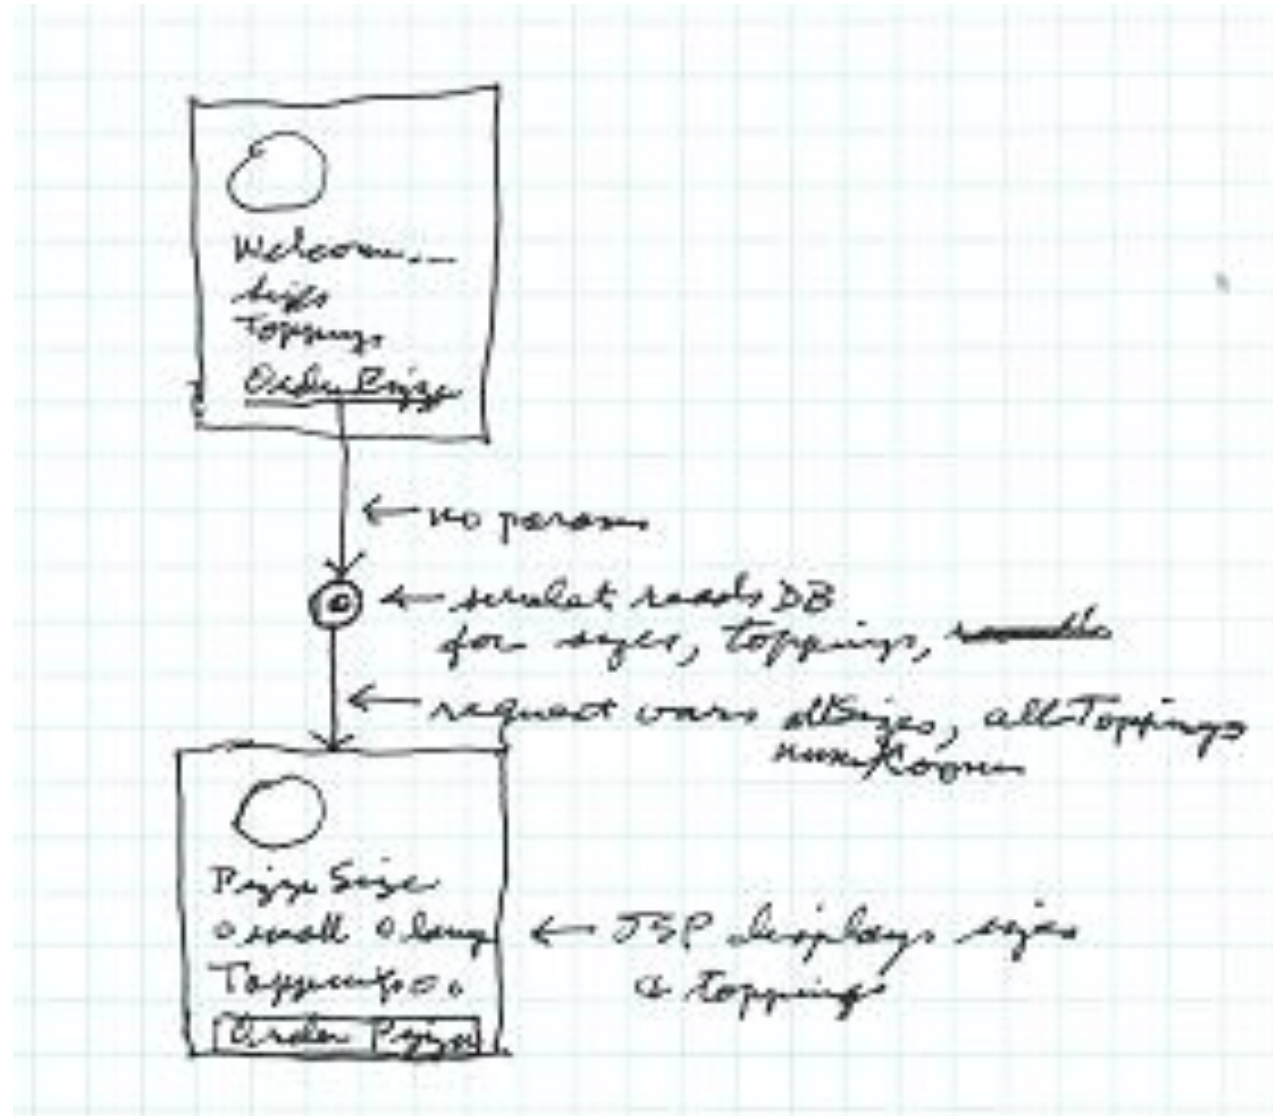 Welcome...
sizes
Toppings
Order Pizza
← no params
← servlet reads DB
for sizes, toppings,
← request vars allSizes, allToppings
numRooms
Pizza Size
o small o large
Toppings o o o
← JSP displays sizes
& toppings
Order Pizza